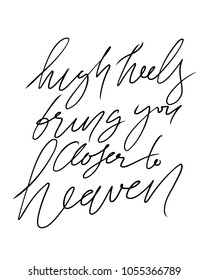 high heels
bring you
closer to
heaven
shutterstock.com · 1055366789